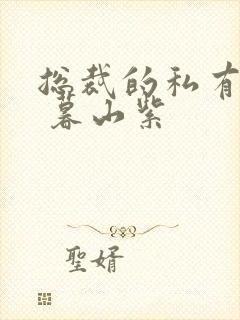 总裁的私有
暮山紫
聖婿